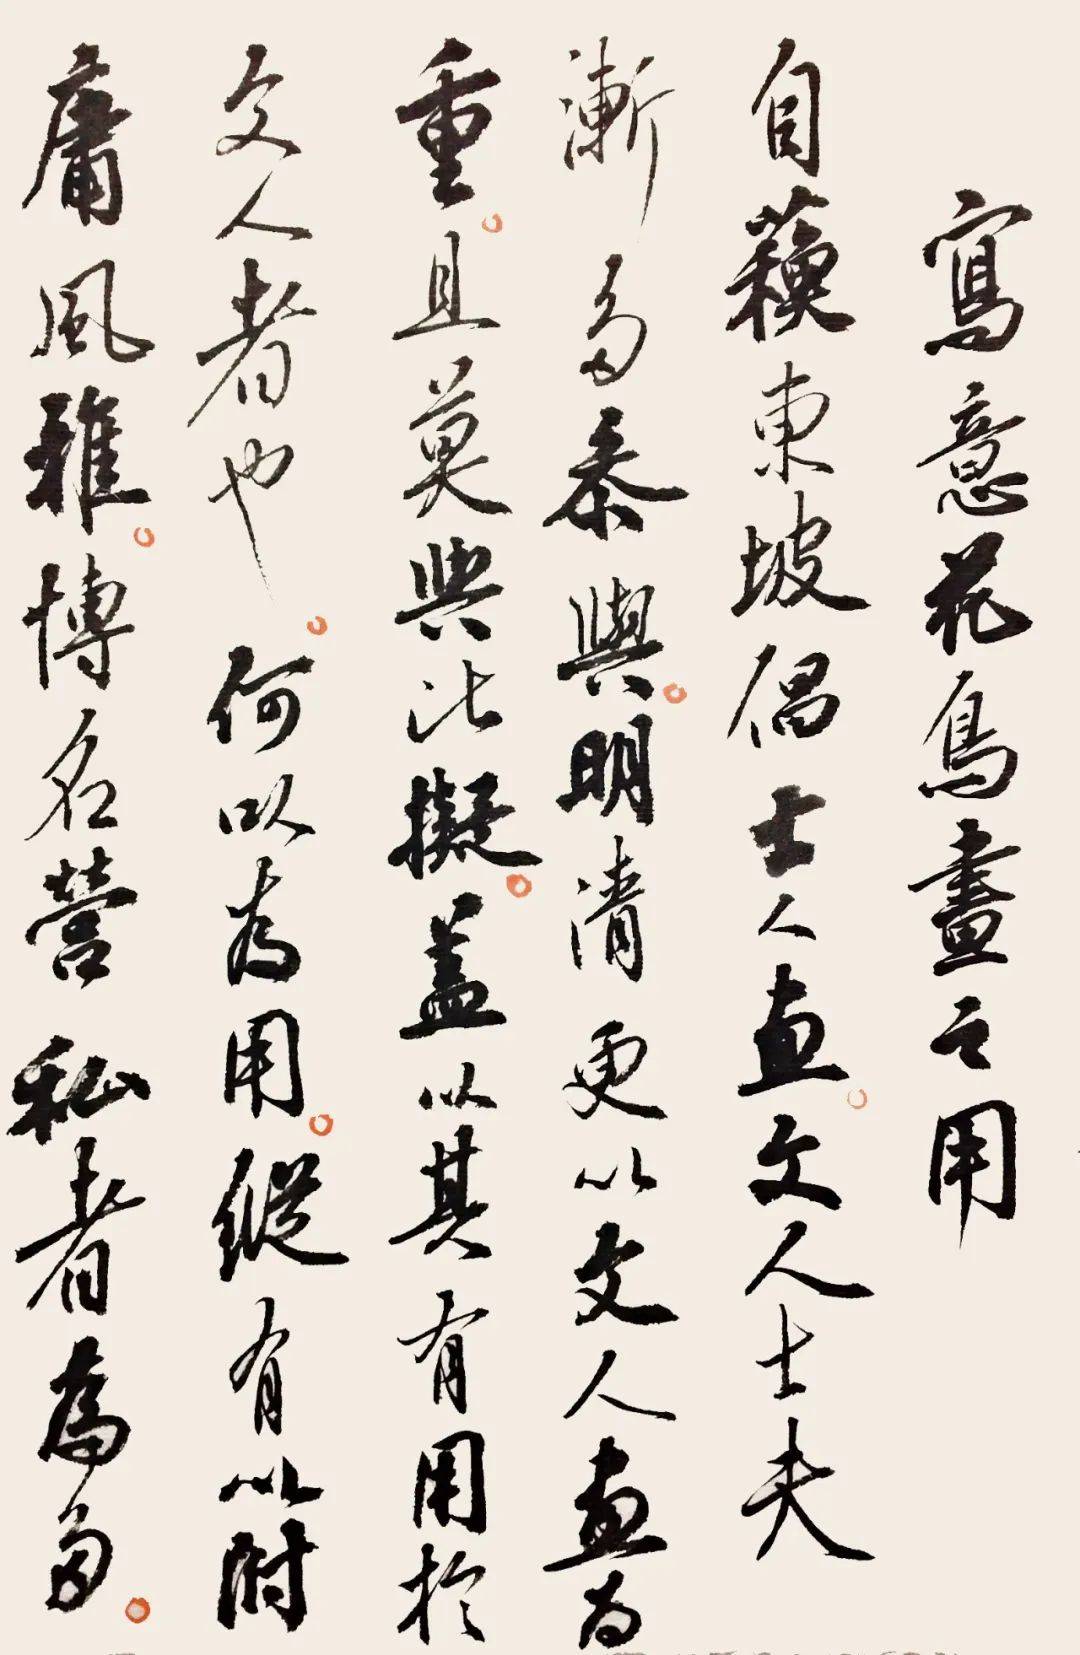 寫意花鳥畫之用
自蘓東坡倡士人畫。文人士夫
漸多泰與。明清更以文人畫為
重。且莫與比擬。蓋以其有用於
文人者也。何以為用。縱有以附
庸風雅。博名營私者為多。